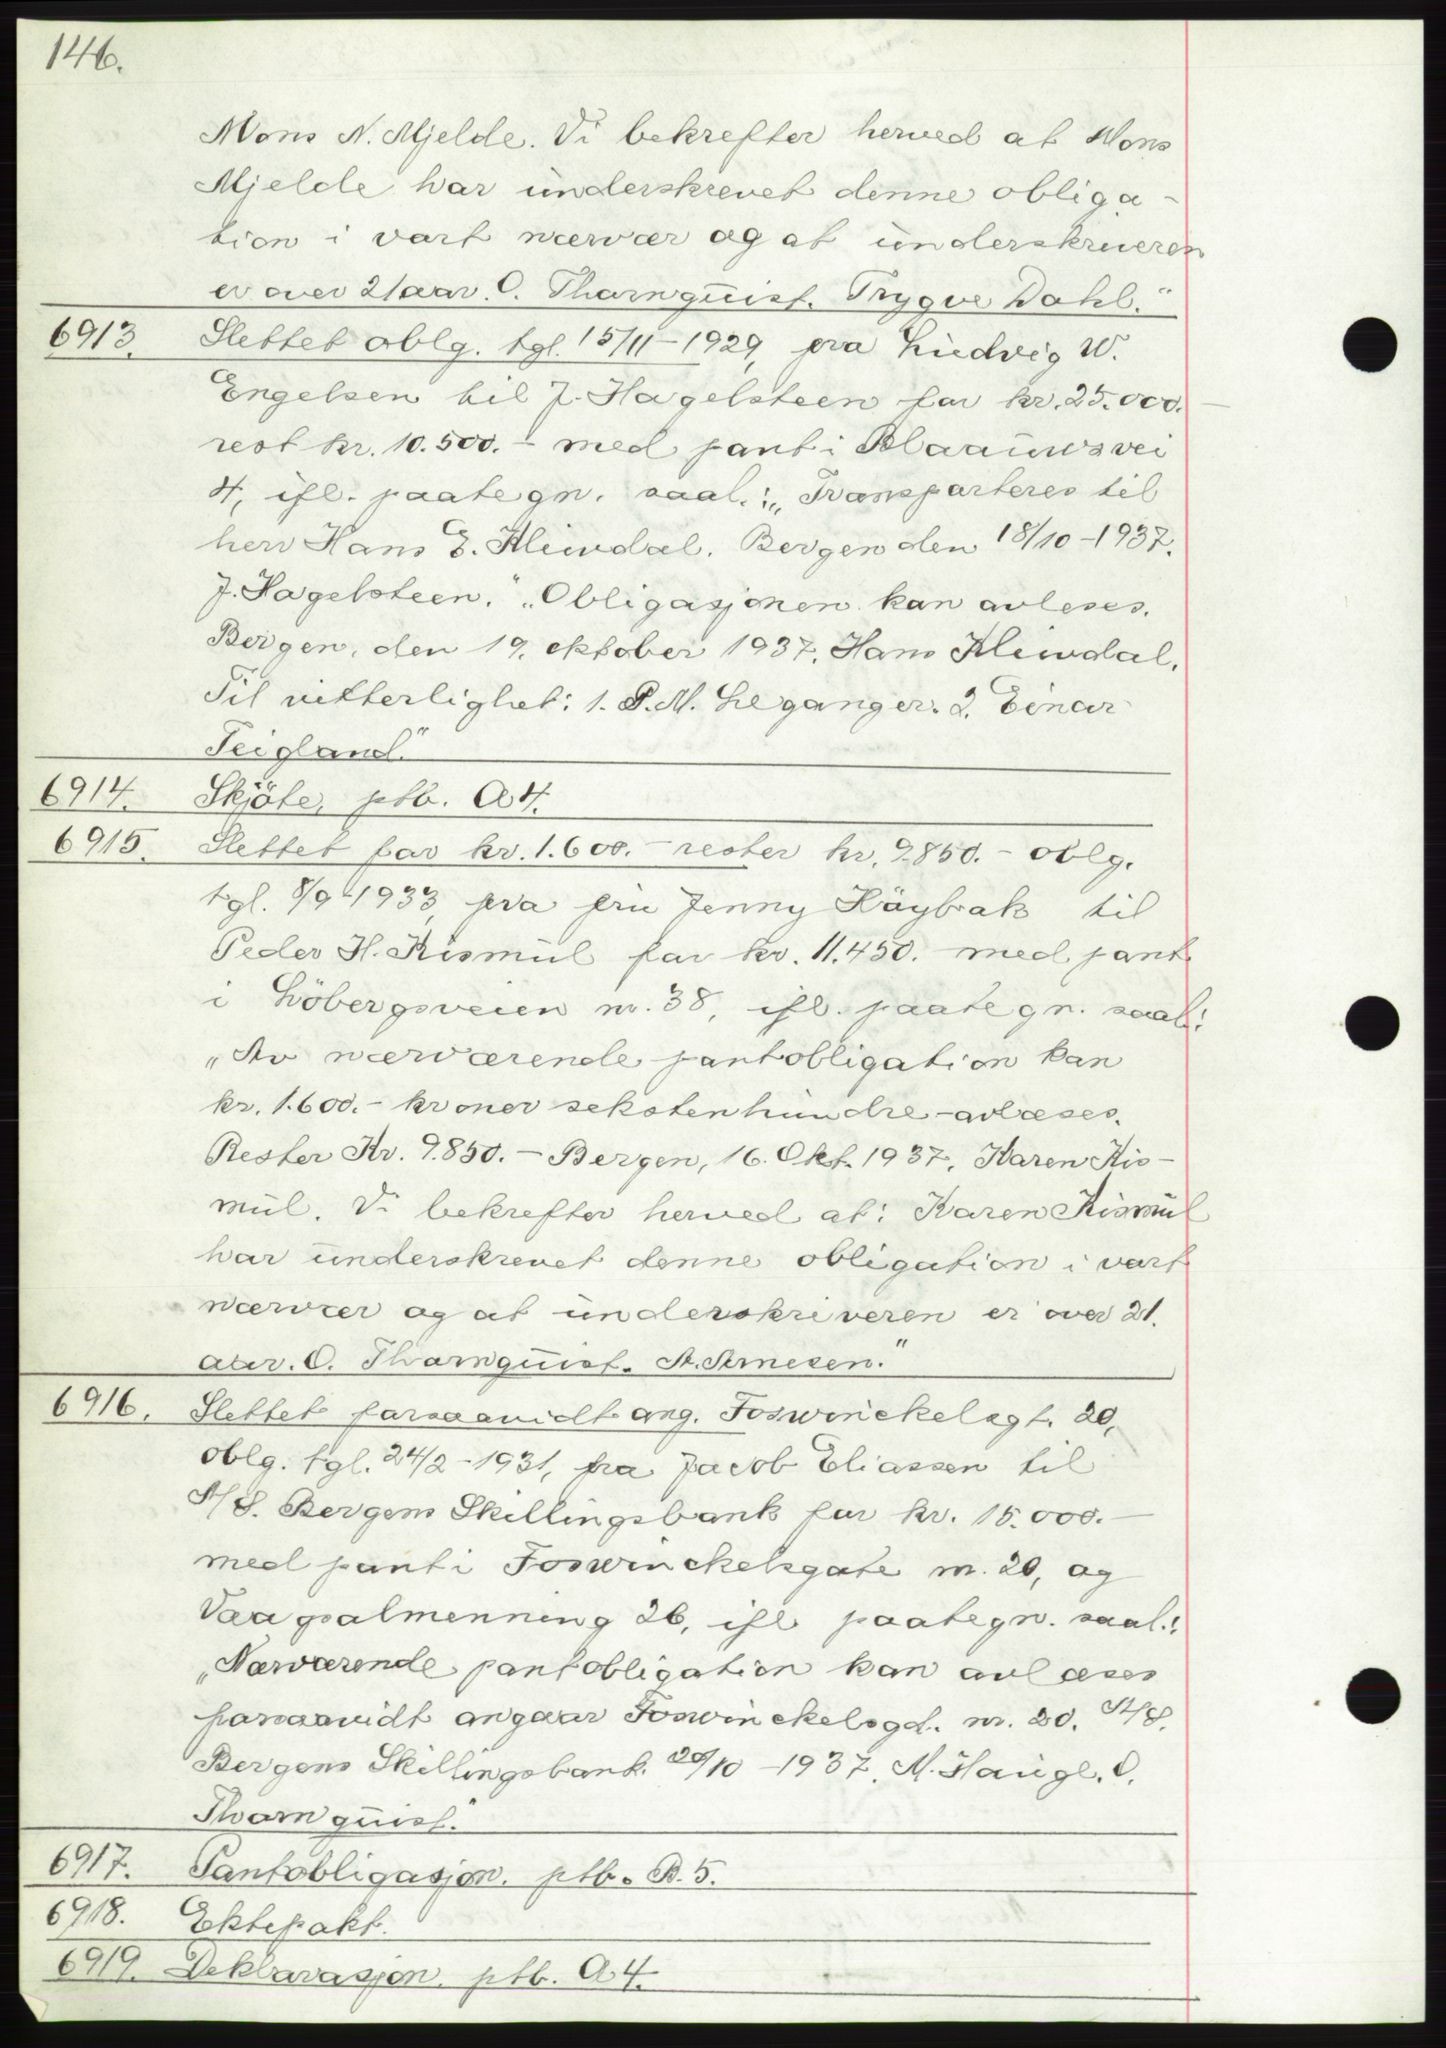 146.
Mons N. Mjelde. Vi bekrefter herved at Mons
Mjelde har underskrevet denne obliga-
tion i vart nærvær og at underskriveren
er over 21 aar. O. Thornquist. Trygve Dahl."
6913. Slettet oblg. tgl. 15/11-1929, fra Ludvig W.
Engelsen til J. Hagelsteen for kr. 25.000.-
rest kr. 10.500.- med pant i Blaauws vei
4, ifl. paategn. saal.: „Transporteres til
herr Hans E. Kleivdal. Bergen den 18/10-1937.
J. Hagelsteen." „Obligasjonen kan avleses.
Bergen, den 19. oktober 1937. Hans Kleivdal.
Til vitterlighet: 1. P.M. Leganger. 2. Einar
Teigland."
6914. Skjöte, ptb. A4.
6915. Slettet for kr. 1.600.- rester kr. 9.850.- oblg.
tgl. 8/9-1933, fra fru Jenny Höybak til
Peder H. Kismul for kr. 11.450. med pant
i Löbergsveien nr. 38, ifl. paategn. saal.:
„Av nærværende pantobligation kan
kr. 1.600.- kroner sekstenhundre-avlæses.
Rester Kr. 9.850.- Bergen, 16. Okt. 1937. Karen Kis-
mul. Vi bekrefter herved at: Karen Kismul
har underskrevet denne obligation i vart
nærvær og at underskriveren er over 21.
aar. O. Thornquist. A. Arnesen."
6916. Slettet forsaavidt ang. Foswinckelsgt. 20,
oblg. tgl. 24/2-1931, fra Jacob Eliassen til
A/S. Bergens Skillingsbank for kr. 15.000.-
med pant i Foswinckelsgate nr. 20, og
Vaagsalmenning 26, ifl paategn. saal.:
„Nærværende pantobligation kan avlæses
forsaavidt angaar Foswinckelsgt. nr. 20. A/S.
Bergens Skillingsbank. 20/10-1937. M. Haugl. O.
Thornquist."
6917. Pantobligasjon. ptb. B.5.
6918. Ektepakt.
6919. Deklarasjon. ptb. A4.